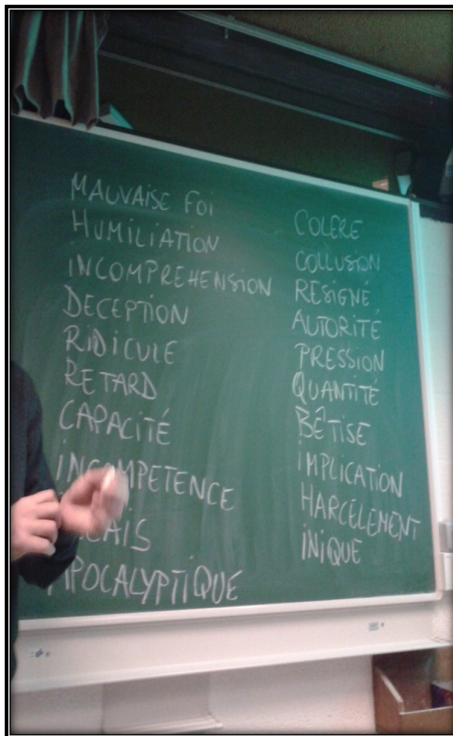 MAUVAISE FOI
HUMILIATION
INCOMPREHENSION
DECEPTION
RIDICULE
RETARD
CAPACITÉ
INCOMPETENCE
APOCALYPTIQUE
COLERE
COLLUSION
RESIGNÉ
AUTORITÉ
PRESSION
QUANTITÉ
BÊTISE
IMPLICATION
HARCELEMENT
INIQUE